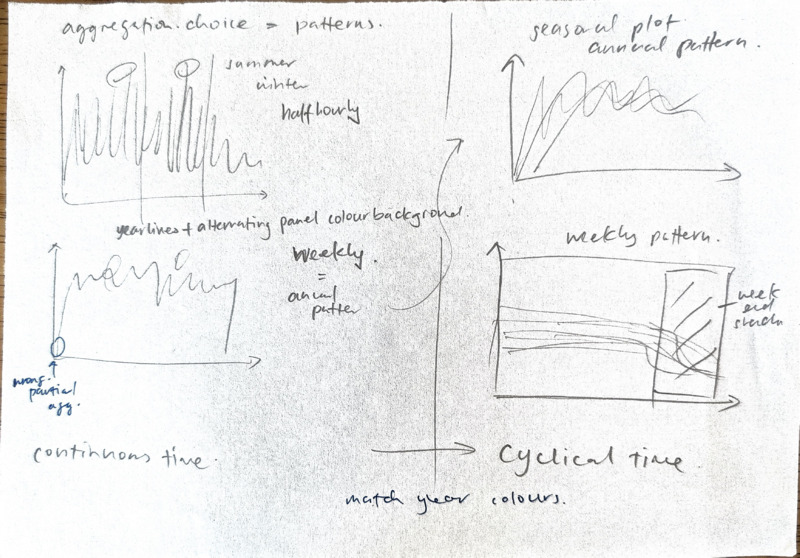 aggregation choice = patterns.
summer
winter
half hourly
year lines + alternating panel colour background.
weekly.
=
annual
patter
wrong.
partial
agg.
continuous time.
seasonal plot
annual pattern.
weekly pattern.
week
end
Cyclical time.
match year colours.